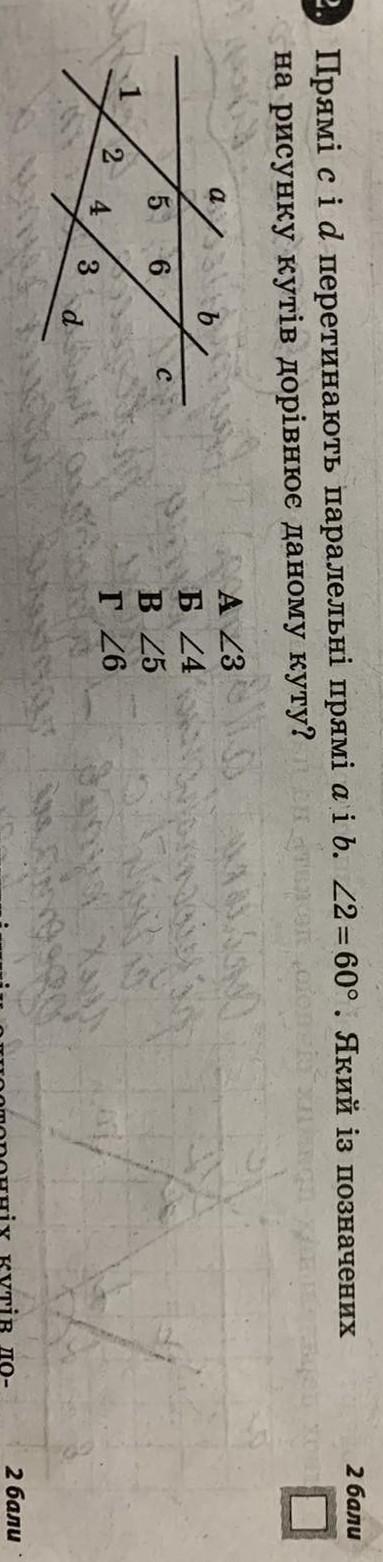 2.
Прямі c і d перетинають паралельні прямі a і b. ∠2=60°. Який із позначених
на рисунку кутів дорівнює даному куту?
2 бали
a
b
c
5 6
1
2
4
3
d
А ∠3
Б ∠4
В ∠5
Г ∠6
односторонніх кутів до-
2 бали